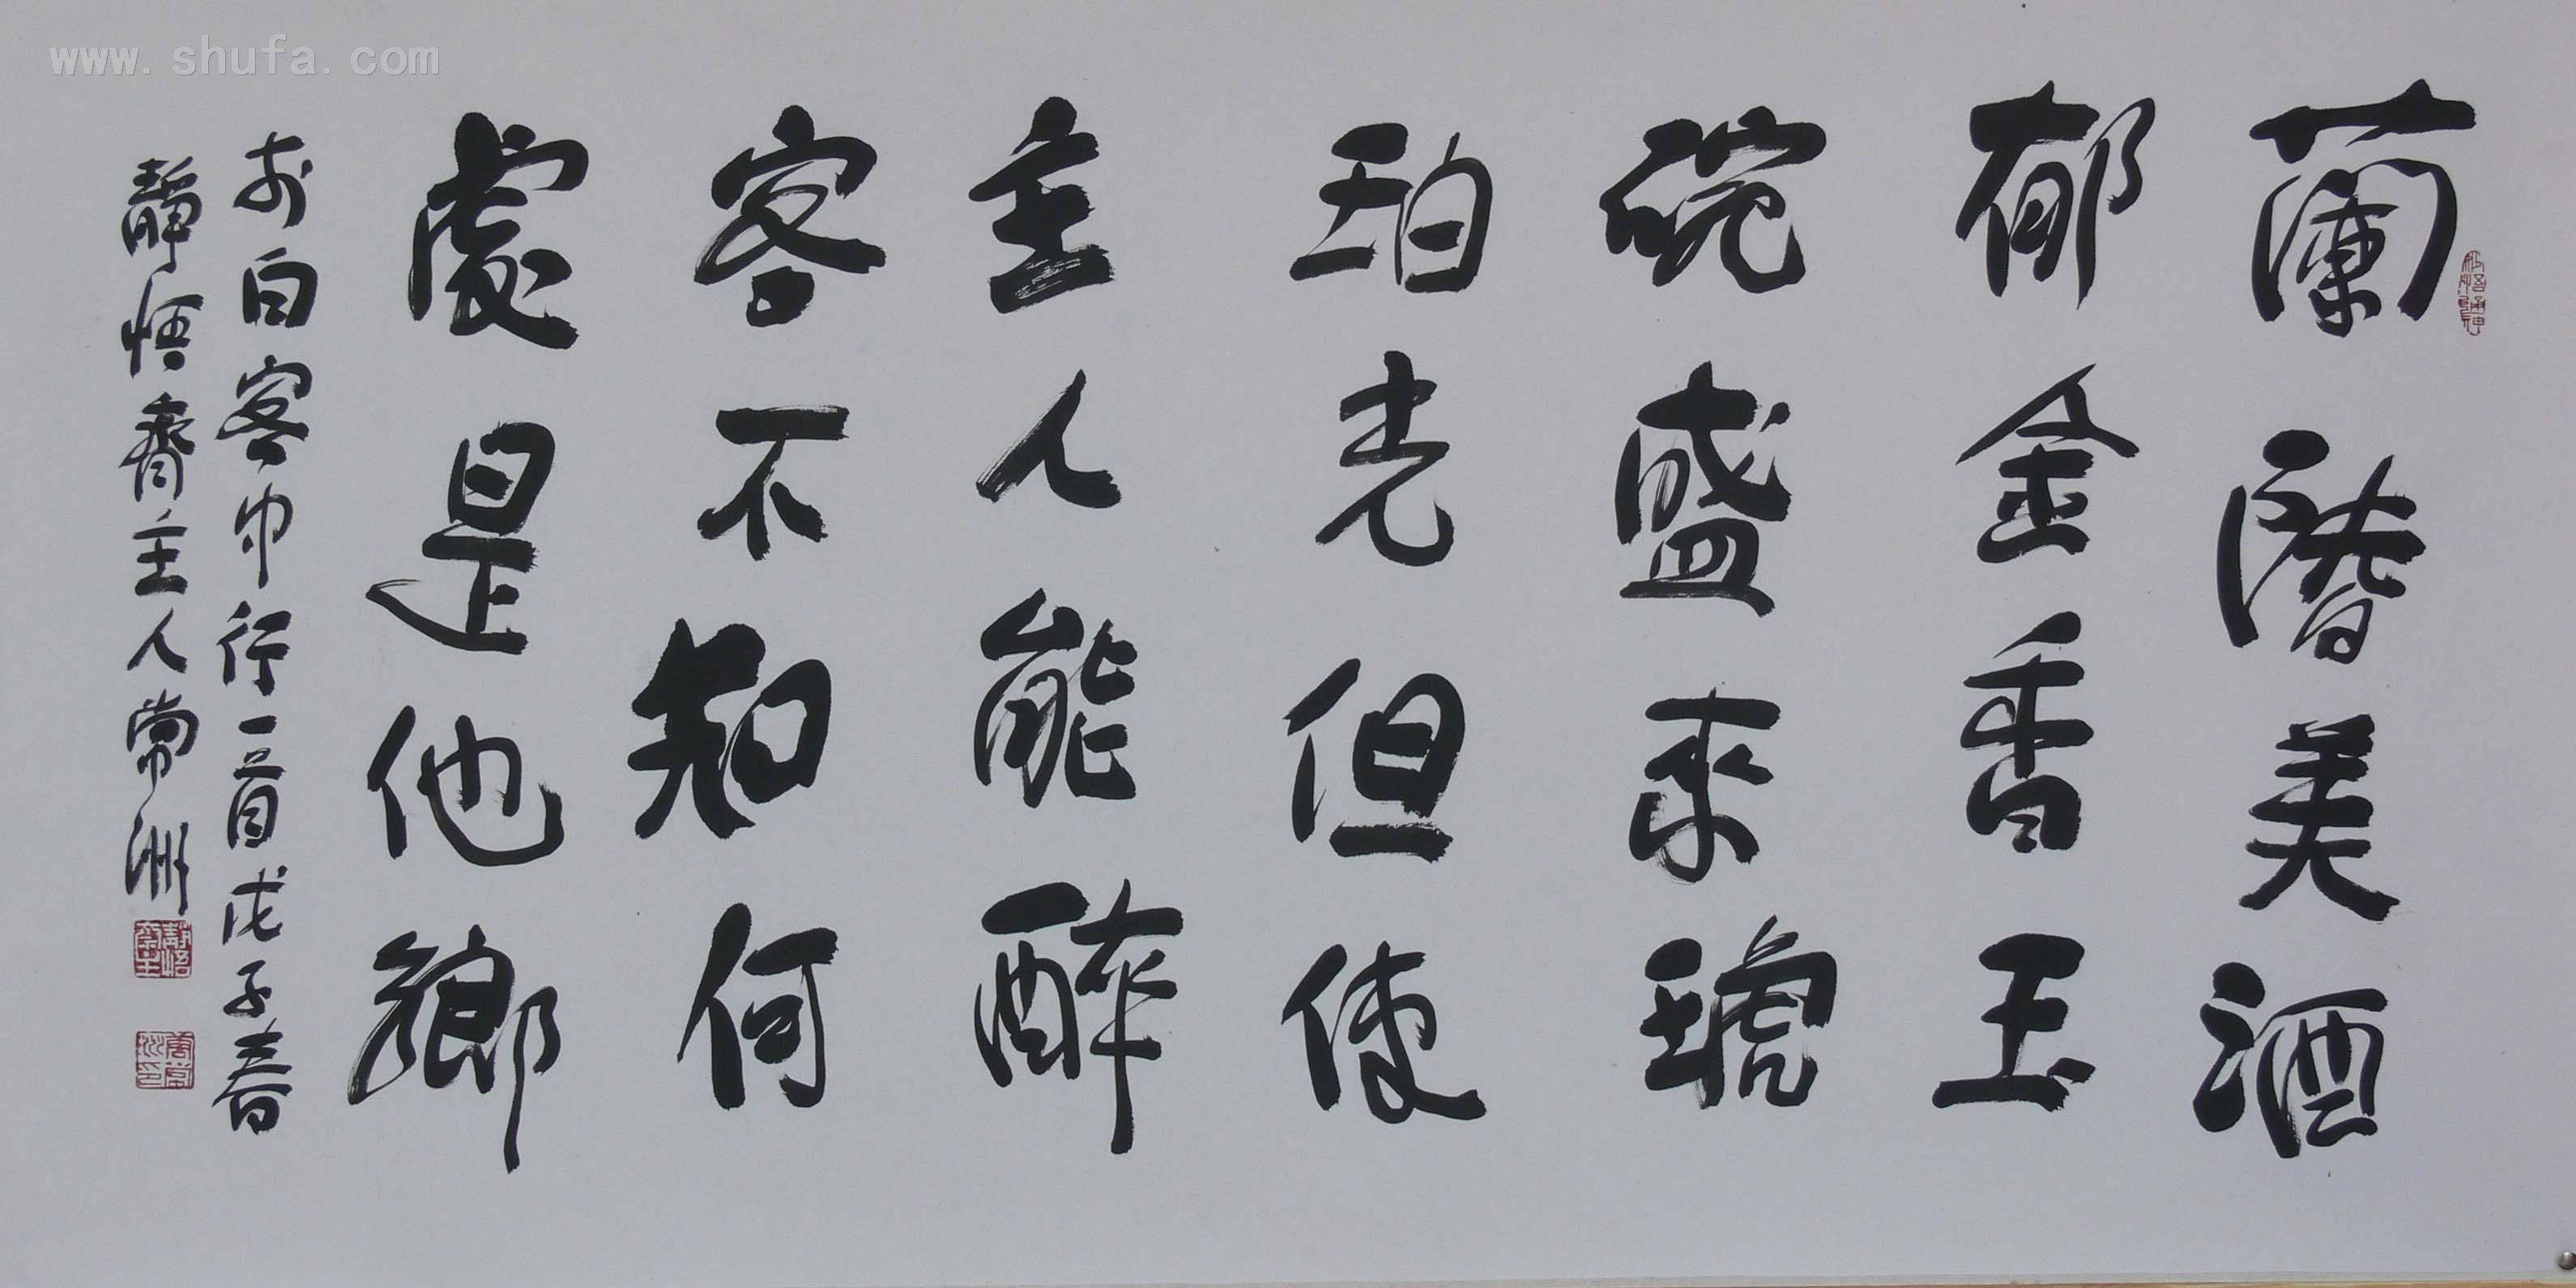 蘭陵美酒
郁金香玉
碗盛來琥
珀光但使
主人能醉
客不知何
處是他鄉
李白客中行一首戊子春
靜悟齋主人常洲
www.shufa.com